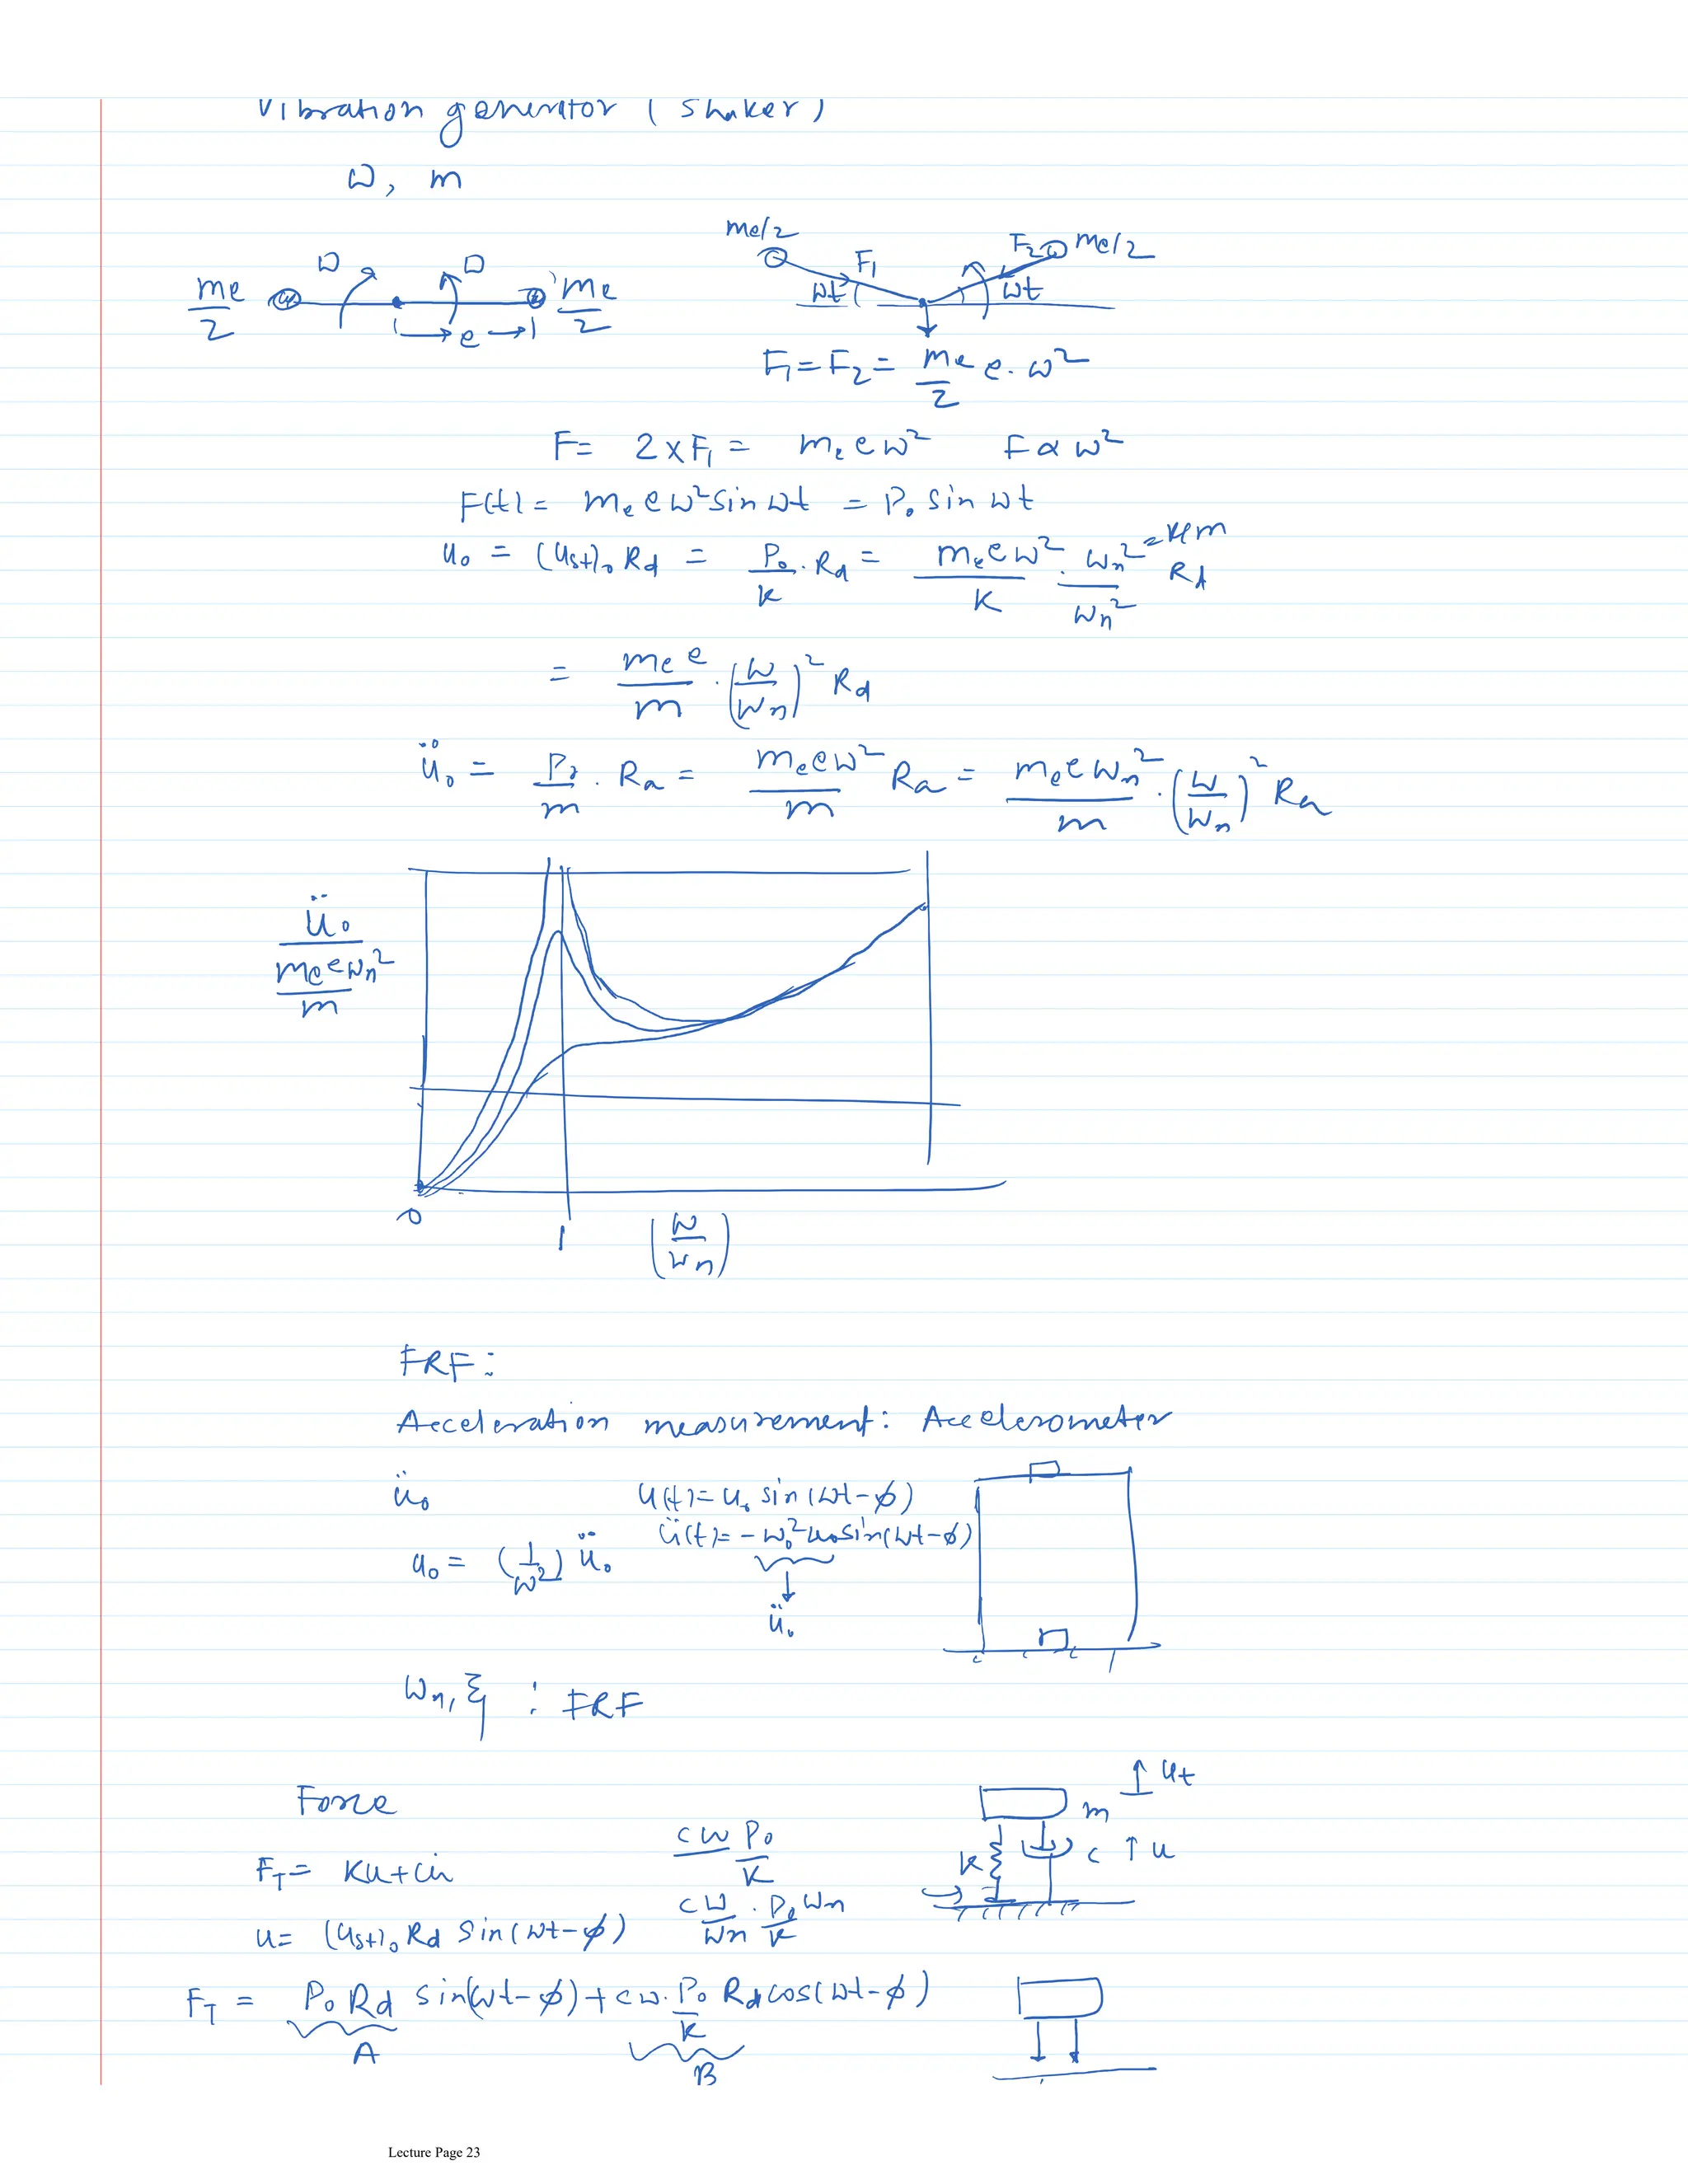 Vibration generator (shaker)
ω, m
me/2 ω ω me/2
e
me/2 F₁ F₂ me/2
ωt ωt
F₁ = F₂ = me/2 e. ω²
F = 2 x F₁ = mₑ e ω² F ∝ ω²
F(t) = mₑ e ω² sin ωt = P₀ sin ωt
u₀ = (ust)₀ Rd = P₀/k . Rd = mₑ e ω²/K . ωn²/ωn² = K/m Rd
= mₑ e/m . (ω/ωn)² Rd
ü₀ = P₀/m . Ra = mₑ e ω²/m Ra = mₑ e ωn²/m . (ω/ωn)² Ra
ü₀/(mₑ e ωn²/m)
0 1 (ω/ωn)
FRF:
Acceleration measurement: Accelerometer
ü₀ u(t) = u₀ sin(ωt-φ)
u₀ = (1/ω²) ü₀ ü(t) = - ω₀² u₀ sin(ωt-φ)
ü₀
ωn, ξ : FRF
Force
ut
m
cω P₀/K
K c u
FT = Ku + cu̇
cω/ωn . P₀ ωn/K
u = (ust)₀ Rd sin(ωt-φ)
FT = P₀ Rd sin(ωt-φ) + cω. P₀/K Rd cos(ωt-φ)
A B
Lecture Page 23